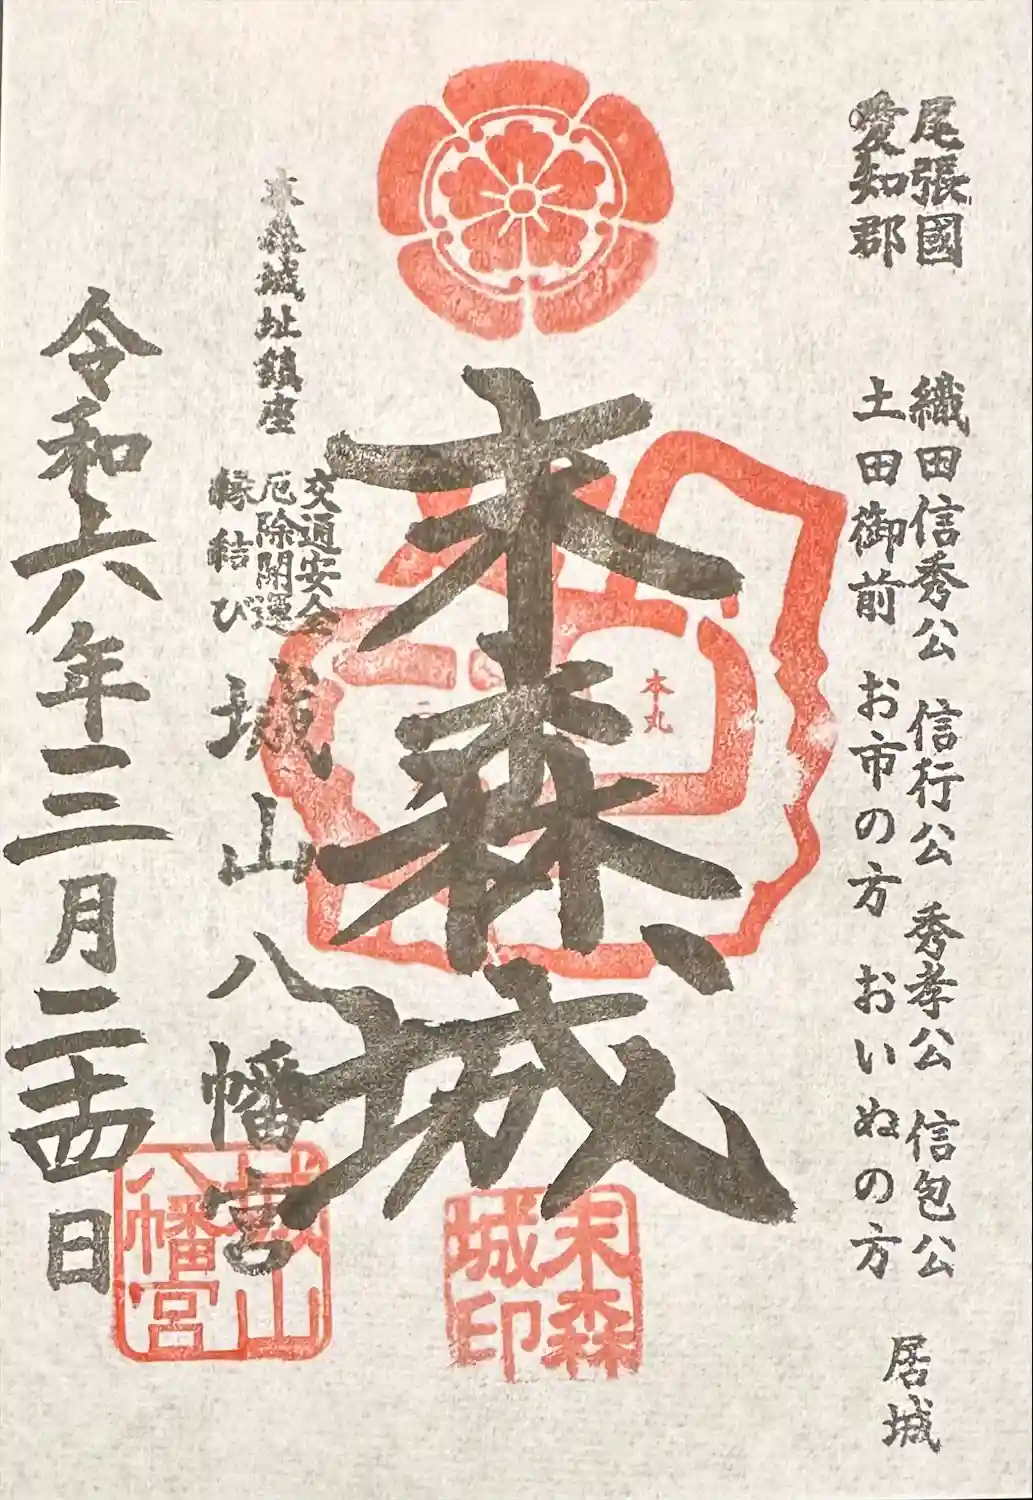 尾張國
愛知郡
織田信秀公 信行公 秀孝公 信包公
土田御前 お市の方 おいぬの方
居城
本丸
末森城
末森城印
末森城址鎮座
交通安全
厄除開運
縁結び
城山八幡宮
城山八幡宮
令和六年三月二十四日